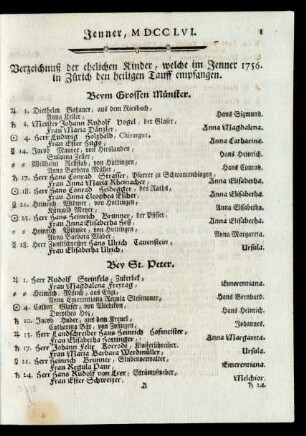 Jenner, MDCCLVI. 1
Verzeichnuß der ehelichen Kinder, welche im Jenner 1756.
in Zürich den heiligen Tauff empfangen.
Beym Grossen Münster.
♃ 1. Diethelm aus dem Riesbach,
Anna Keller, Hans Sigmund.
♄ 3. Meister Johann Rudolf Vogel, der Glaser,
Frau Maria Däniker, Anna Magdalena.
☉ 4. Herr Ludwig Holzhalb, Chirurgus,
Frau Ester Hugo, Anna Catharina.
14. Jacob Maurer, von Hirslanden,
Susanna Zeller, Hans Heinrich.
Wilhelm Nessftab, von Hottingen,
Anna Barbara Müller, Hans Conrad.
♄ 17. Herr Hans Conrad Strasser, Pfarrer zu Schwamendingen,
Frau Anna Maria Rheinacher, Anna Elisabetha.
☉ 18. Herr Hans Conrad Heidegger, des Raths,
Frau Anna Cleophea Escher, Anna Elisabetha.
21. Heinrich von Hottingen,
Anna Elisabetha.
☉ Herr Hans Heinrich Brunner, der Pfister,
Frau Anna Elisabetha Heß, Anna Elisabetha.
Heinrich von Hottingen,
Anna Barbara Anna Margareta.
♃ 18. Herr Zunftschreiber Hans Heinrich Tauenstein,
Frau Elisabetha Ulrich, Ursula.
Bey St. Peter.
♃ 1. Herr Rudolf Steinfels, Zukerbek,
Frau Magdalena Freytag, Emerentiana.
Heinrich Morach, aus Engi,
Anna Emerentiana Regula Hans Bernhard.
☉ 4. Caspar Glaser, von Wiedikon,
Dorothea Hotz, Hans Heinrich.
♂ 10. Jacob Huber, aus dem
Catharina von Zofingen, Johannes.
♃ 15. Herr Landschreiber Hans Heinrich Hofmeister,
Frau Elisabetha Hottinger, Anna Margareta.
♄ 17. Herr Johann Felix Corrodi, Klosterschreiber,
Frau Maria Barbara Werdmüller, Ursula.
21. Herr Heinrich Brunner,
Frau Regula Paur, Emerentiana.
♄ 24. Herr Hans Rudolf von Leer, Strümpfweber,
Frau Ester Schweizer, Melchior.
A ♄ 24.